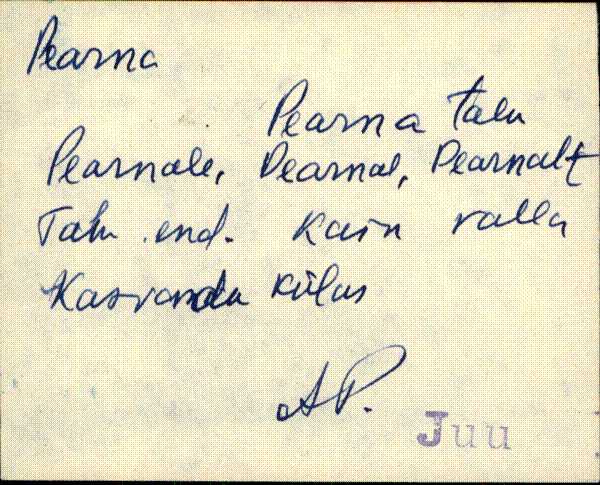 Pearna
Pearna talu
Pearnale, Pearnal, Pearnalt
Talu end. Kaiu valla
Kasvandu külas
A P.
Juu